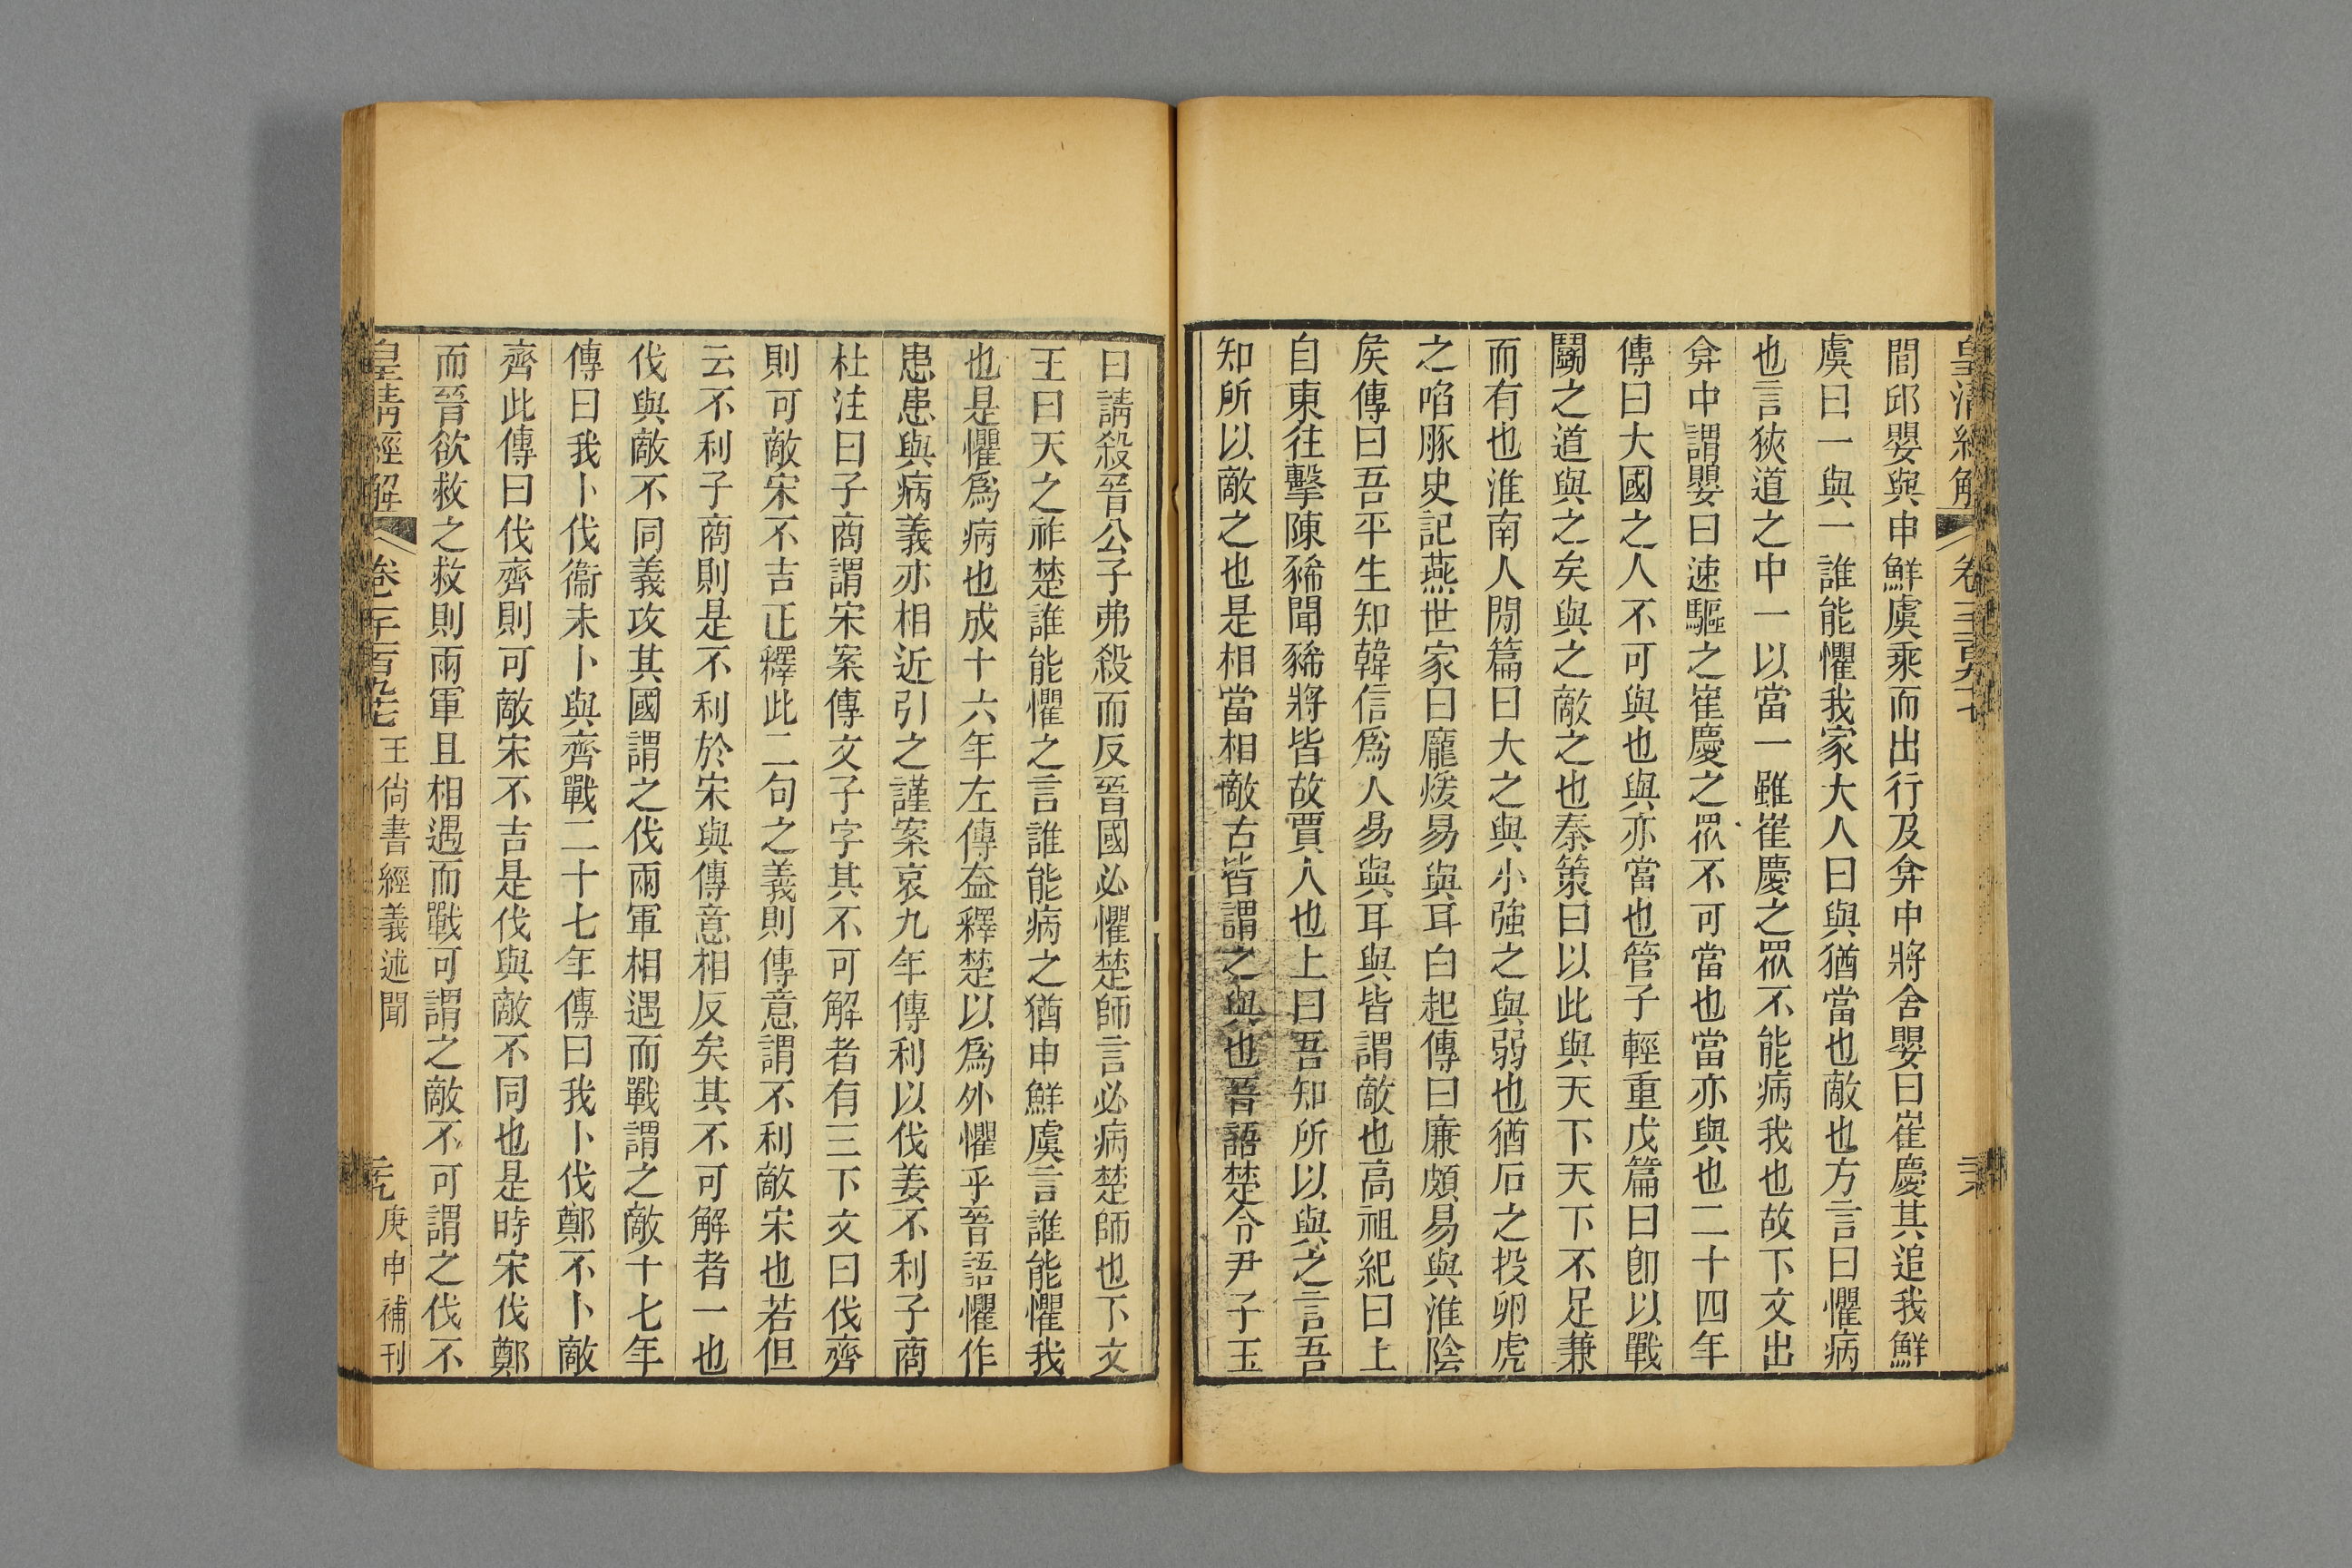 閭邱嬰與申鮮虞乘而出行及弇中將舍嬰曰崔慶其追我鮮
虞曰一與一誰能懼我家大人曰與猶當也敵也方言曰懼病
也言狹道之中一以當一雖崔慶之眾不能病我也故下文出
弇中謂嬰曰速驅之崔慶之眾不可當也當亦與也二十四年
傳曰大國之人不可與也與亦當也管子輕重戊篇曰卽以戰
鬭之道與之矣與之敵之也秦策曰以此與天下天下不足兼
而有也淮南人閒篇曰大之與小強之與弱也猶石之投卵虎
之啗豚史記燕世家曰龐煖易與耳白起傳曰廉頗易與淮陰
矦傳曰吾平生知韓信爲人易與耳與皆謂敵也高祖紀曰上
自東往擊陳豨聞豨將皆故賈人也上曰吾知所以與之言吾
知所以敵之也是相當相敵古皆謂之與也晉語楚令尹子玉
曰請殺晉公子弗殺而反晉國必懼楚師言必病楚師也下文
王曰天之祚楚誰能懼之言誰能病之猶申鮮虞言誰能懼我
也是懼爲病也成十六年左傳益釋楚以爲外懼乎晉語懼作
患患與病義亦相近引之謹案哀九年傳利以伐姜不利子商
杜注曰子商謂宋案傳文子字其不可解者有三下文曰伐齊
則可敵宋不吉正釋此二句之義則傳意謂不利敵宋也若但
云不利子商則是不利於宋與傳意相反矣其不可解者一也
伐與敵不同義攻其國謂之伐兩軍相遇而戰謂之敵十七年
傳曰我卜伐衞未卜與齊戰二十七年傳曰我卜伐鄭不卜敵
齊此傳曰伐齊則可敵宋不吉是伐與敵不同也是時宋伐鄭
而晉欲救之救則兩軍且相遇而戰可謂之敵不可謂之伐不
皇清經解 卷一千一百九十七 王尙書經義述聞 二十九 庚申補刊